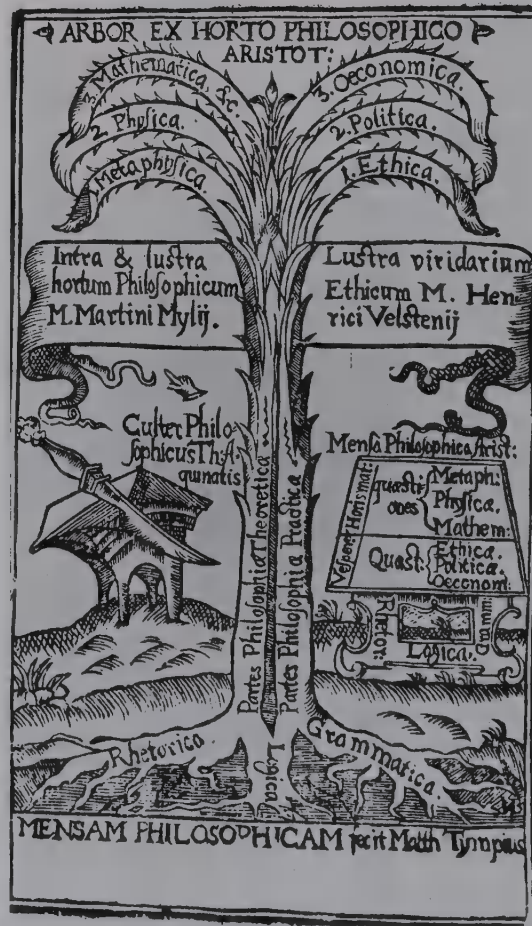 ARBOR EX HORTO PHILOSOPHICO
ARISTOT:
3. Mathematica, &c.
2. Physica.
1. Metaphysica.
3. Oeconomica.
2. Politica.
1. Ethica.
Intra & lustra
hortum Philosophicum
M. Martini Mylij.
Lustra viridarium
Ethicum M. Hen-
rici Velstenij
Culter Philo-
sophicus Th: A-
quinatis
Mensa Philosophica Arist:
quæsti-
ones
Metaph:
Physica.
Mathem:
Quæst:
Ethica.
Politica.
Oeconom:
Rhetor:
Logica.
Partes Philosophiæ Theoretica.
Partes Philosophiæ Practica.
Rhetorica
Logica
Grammatica
MENSAM PHILOSOPHICAM fecit Matth Tympius